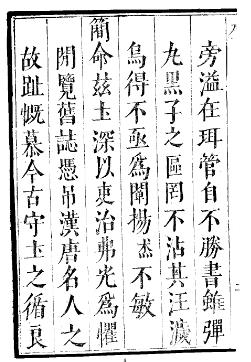 旁溢在珥管自不勝書雖彈
九黑子之區罔不沾其汪濊
烏得不亟為闡揚杰不敏
簡命茲土深以吏治弗光為懼
閒覽舊誌憑吊漢唐名人之
故趾慨慕今古守土之循良